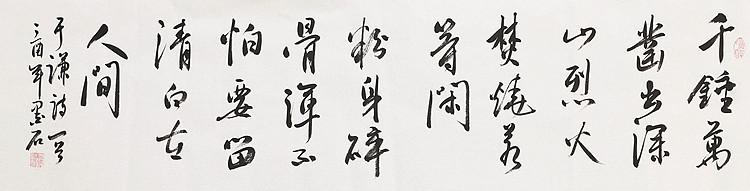 千錘萬
鑿出深
山烈火
焚燒若
等閑
粉身碎
骨渾不
怕要留
清白在
人間
于謙詩一首
酉年墨石